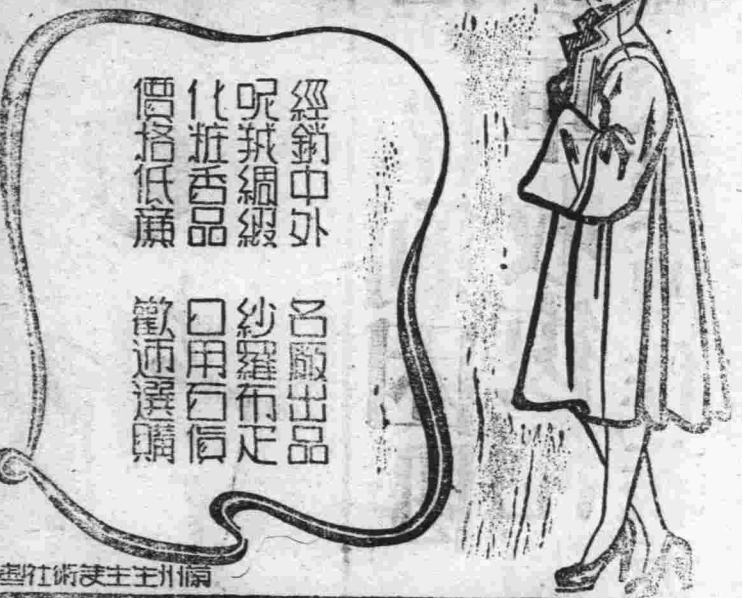 經銷中外 名廠出品
呢絨綢緞 紗羅布疋
化粧香品 日用百貨
價格低廉 歡迎選購
蘭州生生美術社